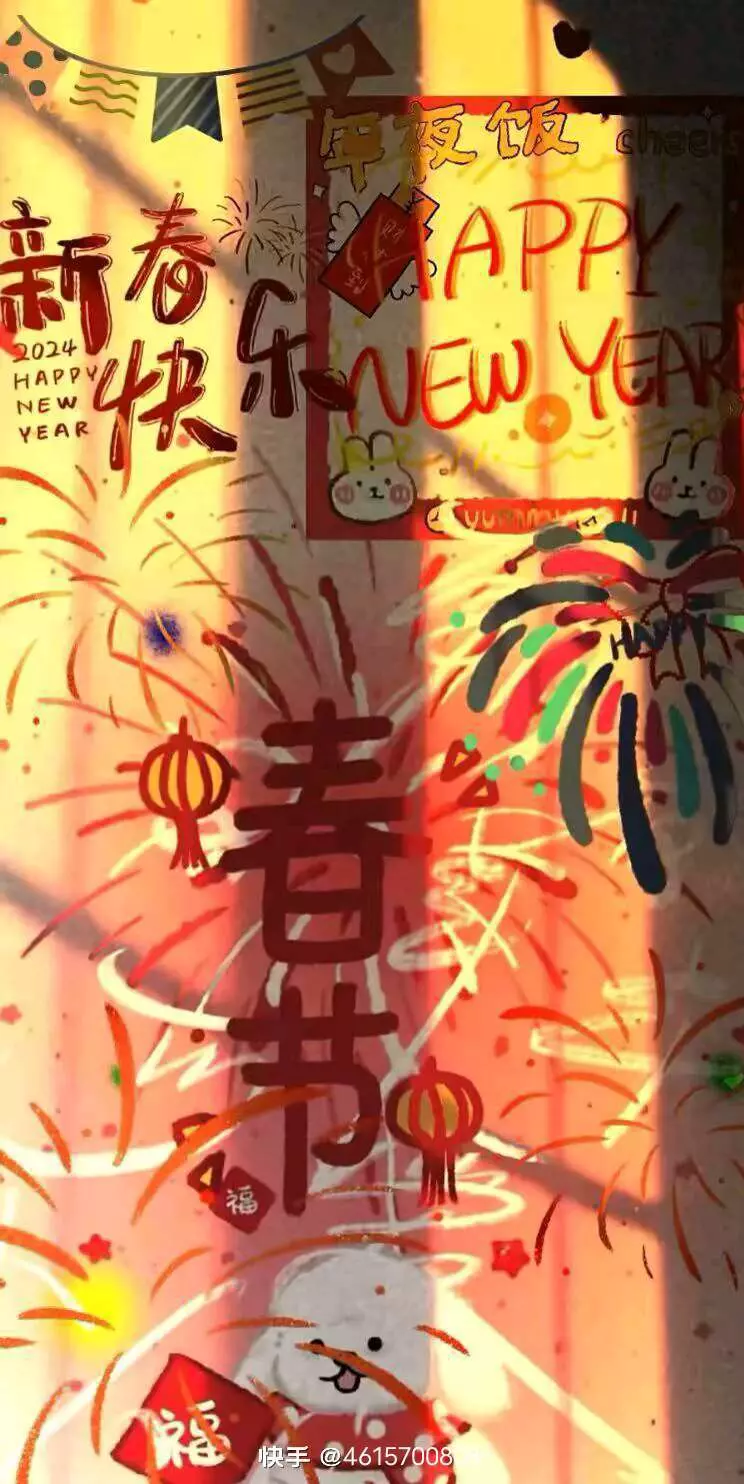 年夜饭
cheers
新春
快乐
2024
HAPPY
NEW
YEAR
HAPPY
NEW YEAR
HAPPY
春
节
福
福
快手